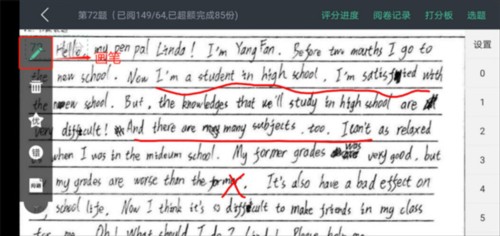 第72题 (已阅149/64,已超额完成85份) 评分进度 阅卷记录 打分板 选题
Hello, my pen pal Linda! I'm Yang Fan. Before two mouths I go to
画笔
the new school. Now I'm a student in high school. I'm satisfied with
设置
the new school. But, the knowledges that we'll study in high school are
0
very difficult! And there are many subjects, too. I can't as relaxed
优
1
when I was in the midium school. My former grades was very good, but
错
2
my grades are worse than the former. It's also have a bad effect on
3
my school life. Now I think it's difficult to make friends in my class
4
for me. Oh! What should I do? Linda! Please help me